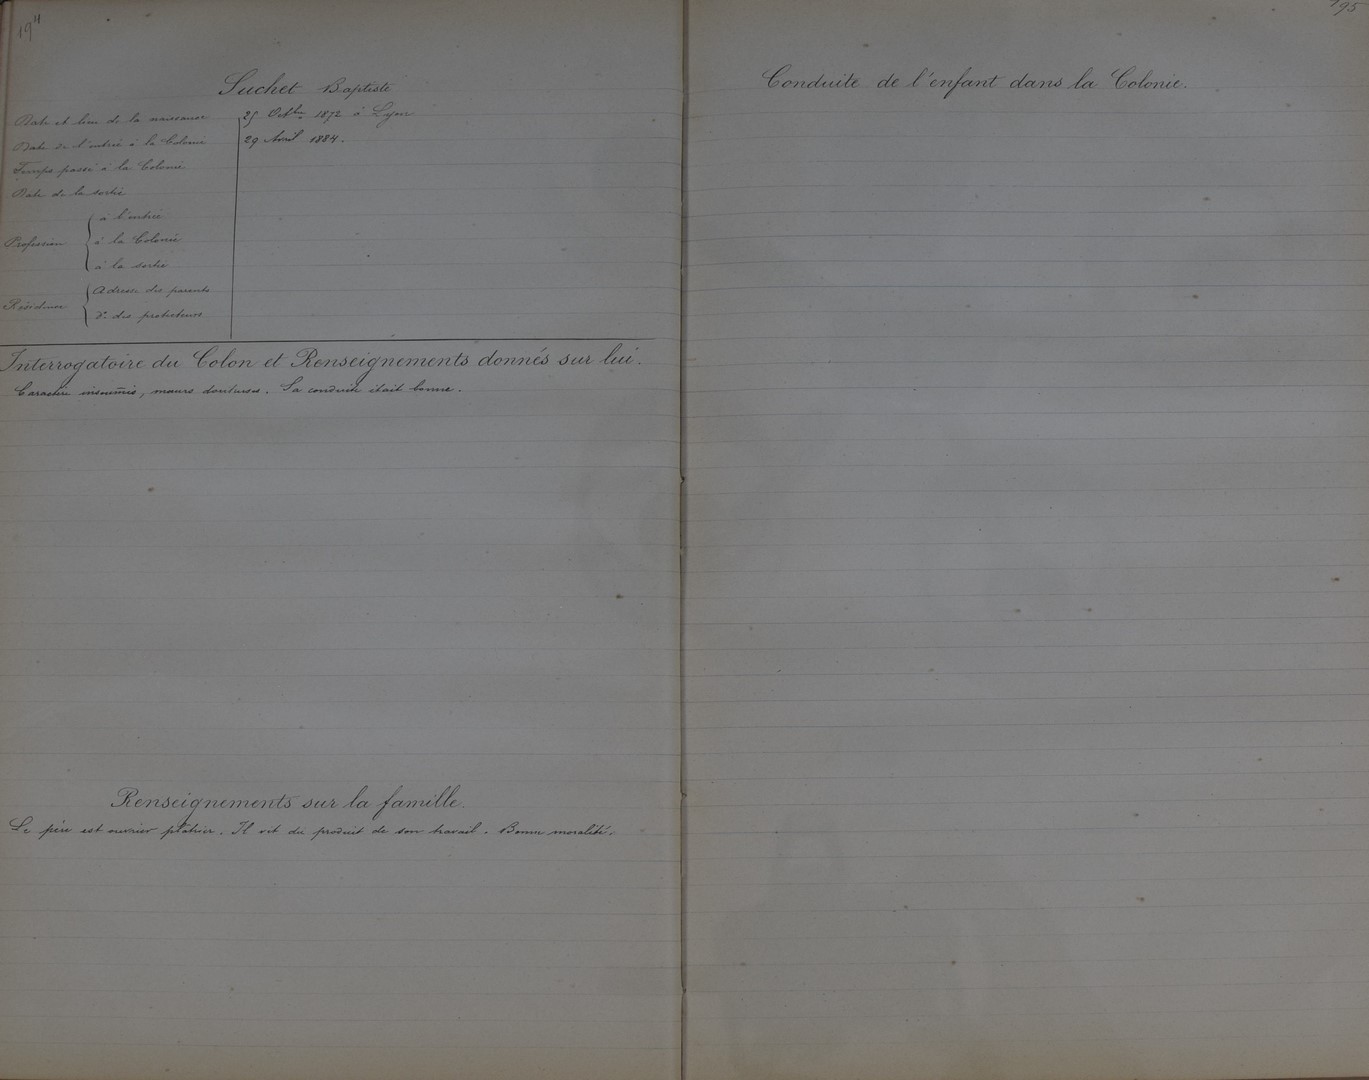 194
Suchet Baptiste
Date et lieu de la naissance 25 Octbre 1872 à Lyon
Date de l'entrée à la Colonie 29 Avril 1884.
Temps passé à la Colonie
Date de la sortie
à l'entrée
Profession à la Colonie
à la sortie
Résidence Adresse des parents
do des protecteurs
Interrogatoire du Colon et Renseignements donnés sur lui.
Caractère insoumis, mœurs douteuses. Sa conduite était bonne.
Renseignements sur la famille.
Le père est ouvrier plâtrier. Il vit du produit de son travail. Bonne moralité.
195
Conduite de l'enfant dans la Colonie.